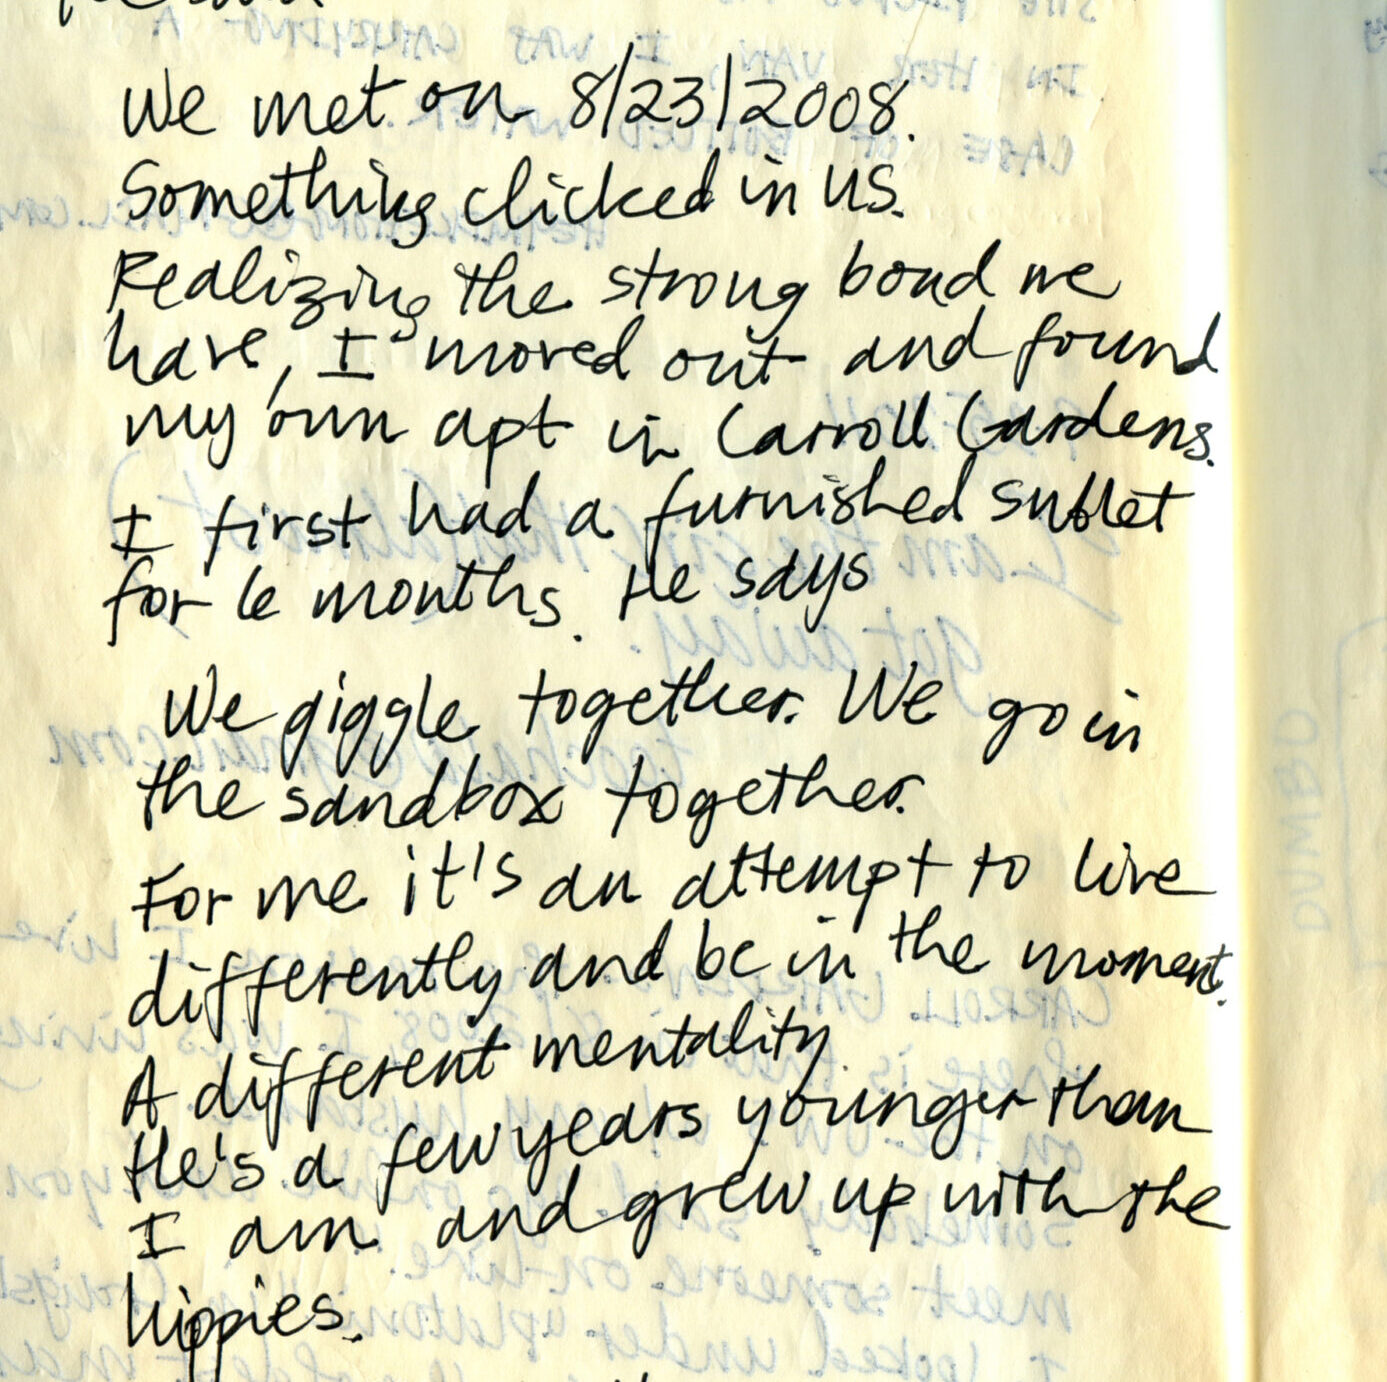 We met on 8/23/2008.
Something clicked in us.
Realizing the strong bond we
have, I moved out and found
my own apt in Carroll Gardens.
I first had a furnished sublet
for 6 months. He says
We giggle together. We go in
the sandbox together.
For me it's an attempt to live
differently and be in the moment.
A different mentality.
He's a few years younger than
I am and grew up with the
hippies.
DUMBO